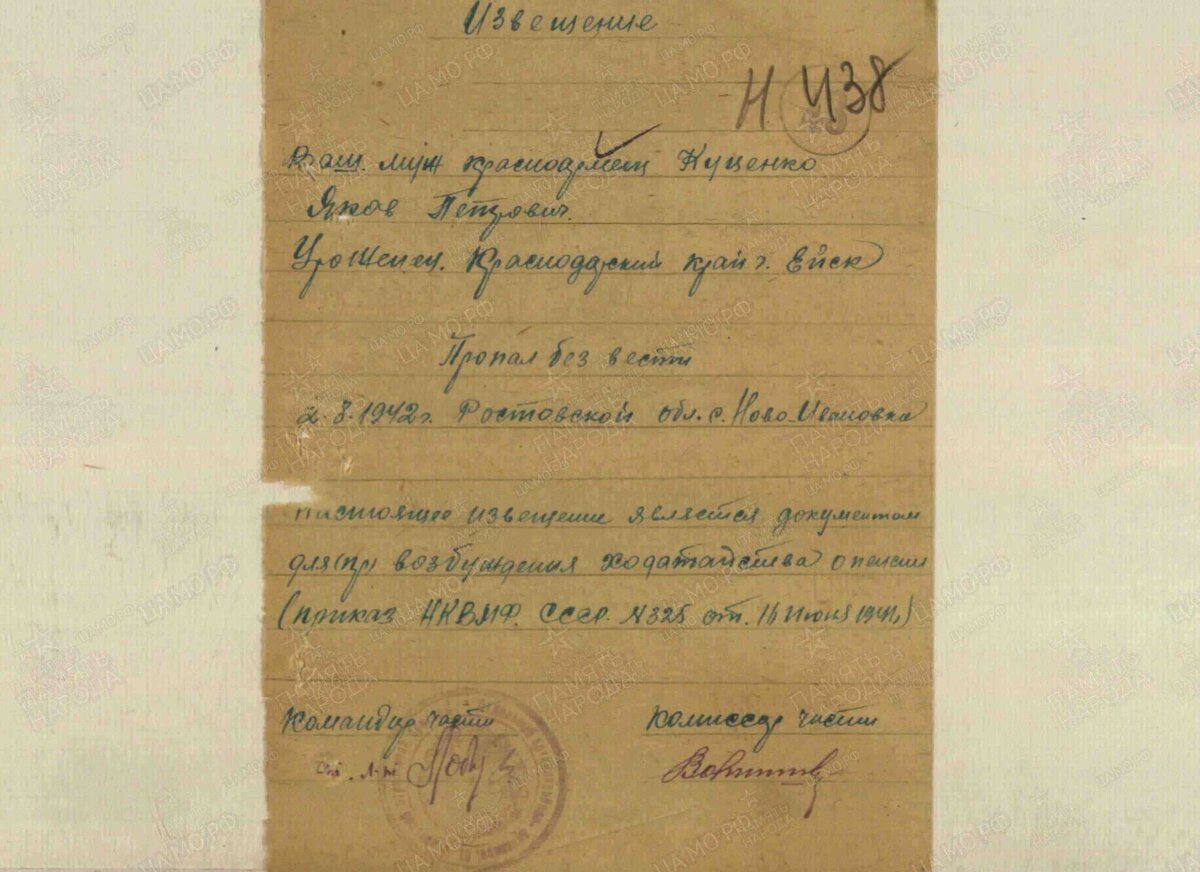 Извещение
Н 438
Ваш муж красноармеец Куценко
Яков Петрович
Уроженец. Краснодарский край г. Ейск
Пропал без вести
2.8.1942г. Ростовской обл. с. Ново-Ивановка
настоящее извещение является документом
для возбуждения ходатайства о пенсии
(приказ НКВМФ. СССР. №325 от. 16 июня 1941)
Командир части Комиссар части
ст. л-т
ЦАМО.РФ
ПАМЯТЬ
НАРОДА